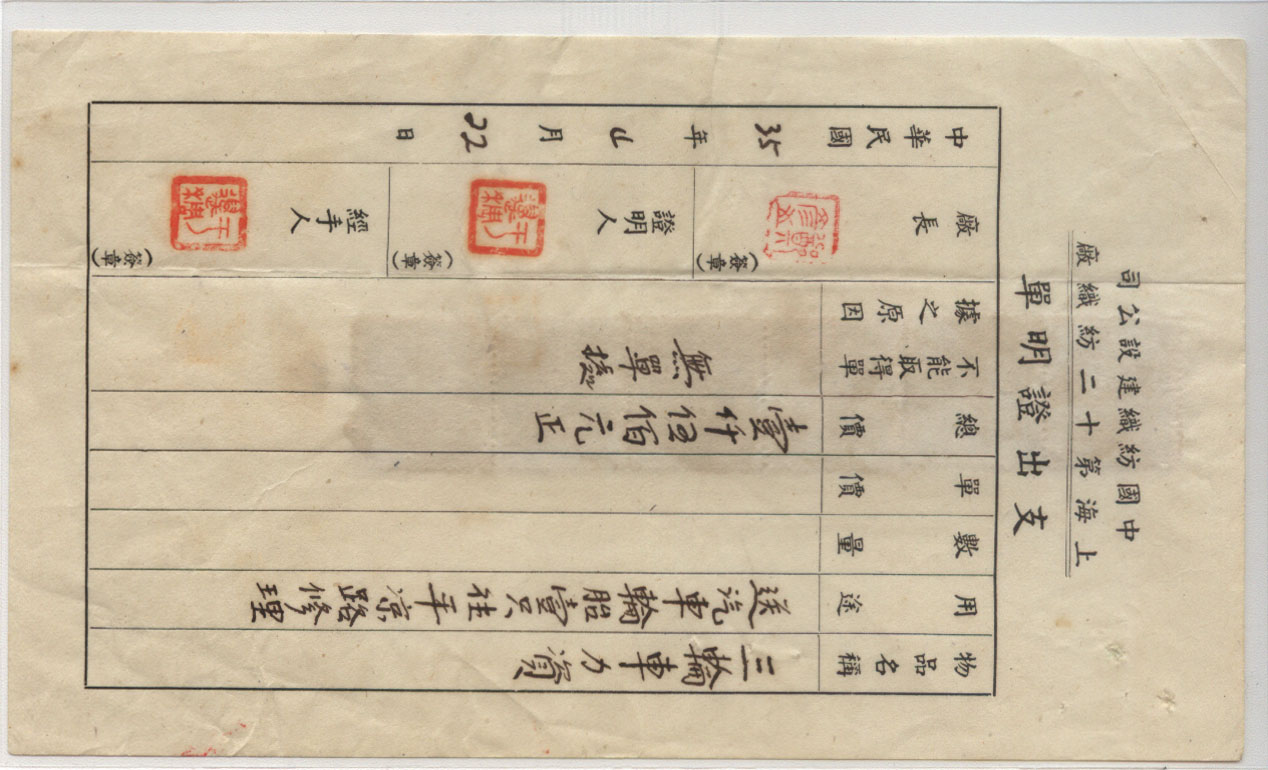 中國紡織建設公司
上海第十二紡織廠
支出證明單
物品名稱
三輪車力資
用途
送汽車輪胎壹只往平凉路修理
數量
單價
總價
壹仟伍佰元正
不能取得單
據之原因
無單據
廠長
(簽章)
證明人
(簽章)
經手人
(簽章)
中華民國35年4月22日